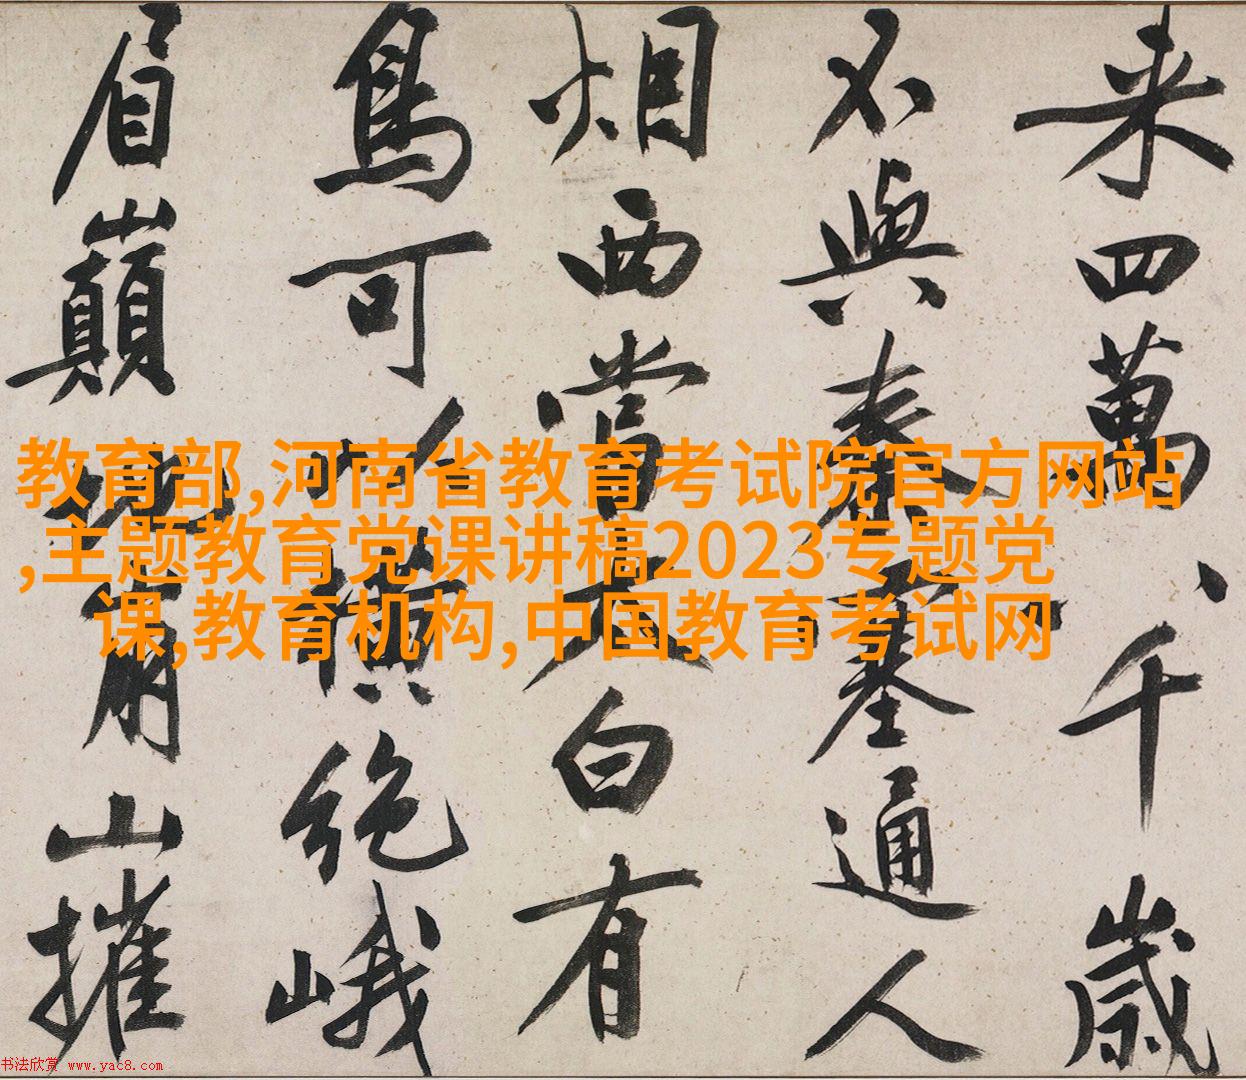 来四萬八千歲
不與秦塞通人
烟西當太白有
鳥可以横絶峨
眉巔地崩山摧
教育部,河南省教育考试院官方网站
,主题教育党课讲稿2023专题党
课,教育机构,中国教育考试网
书法欣赏 www.yac8.com